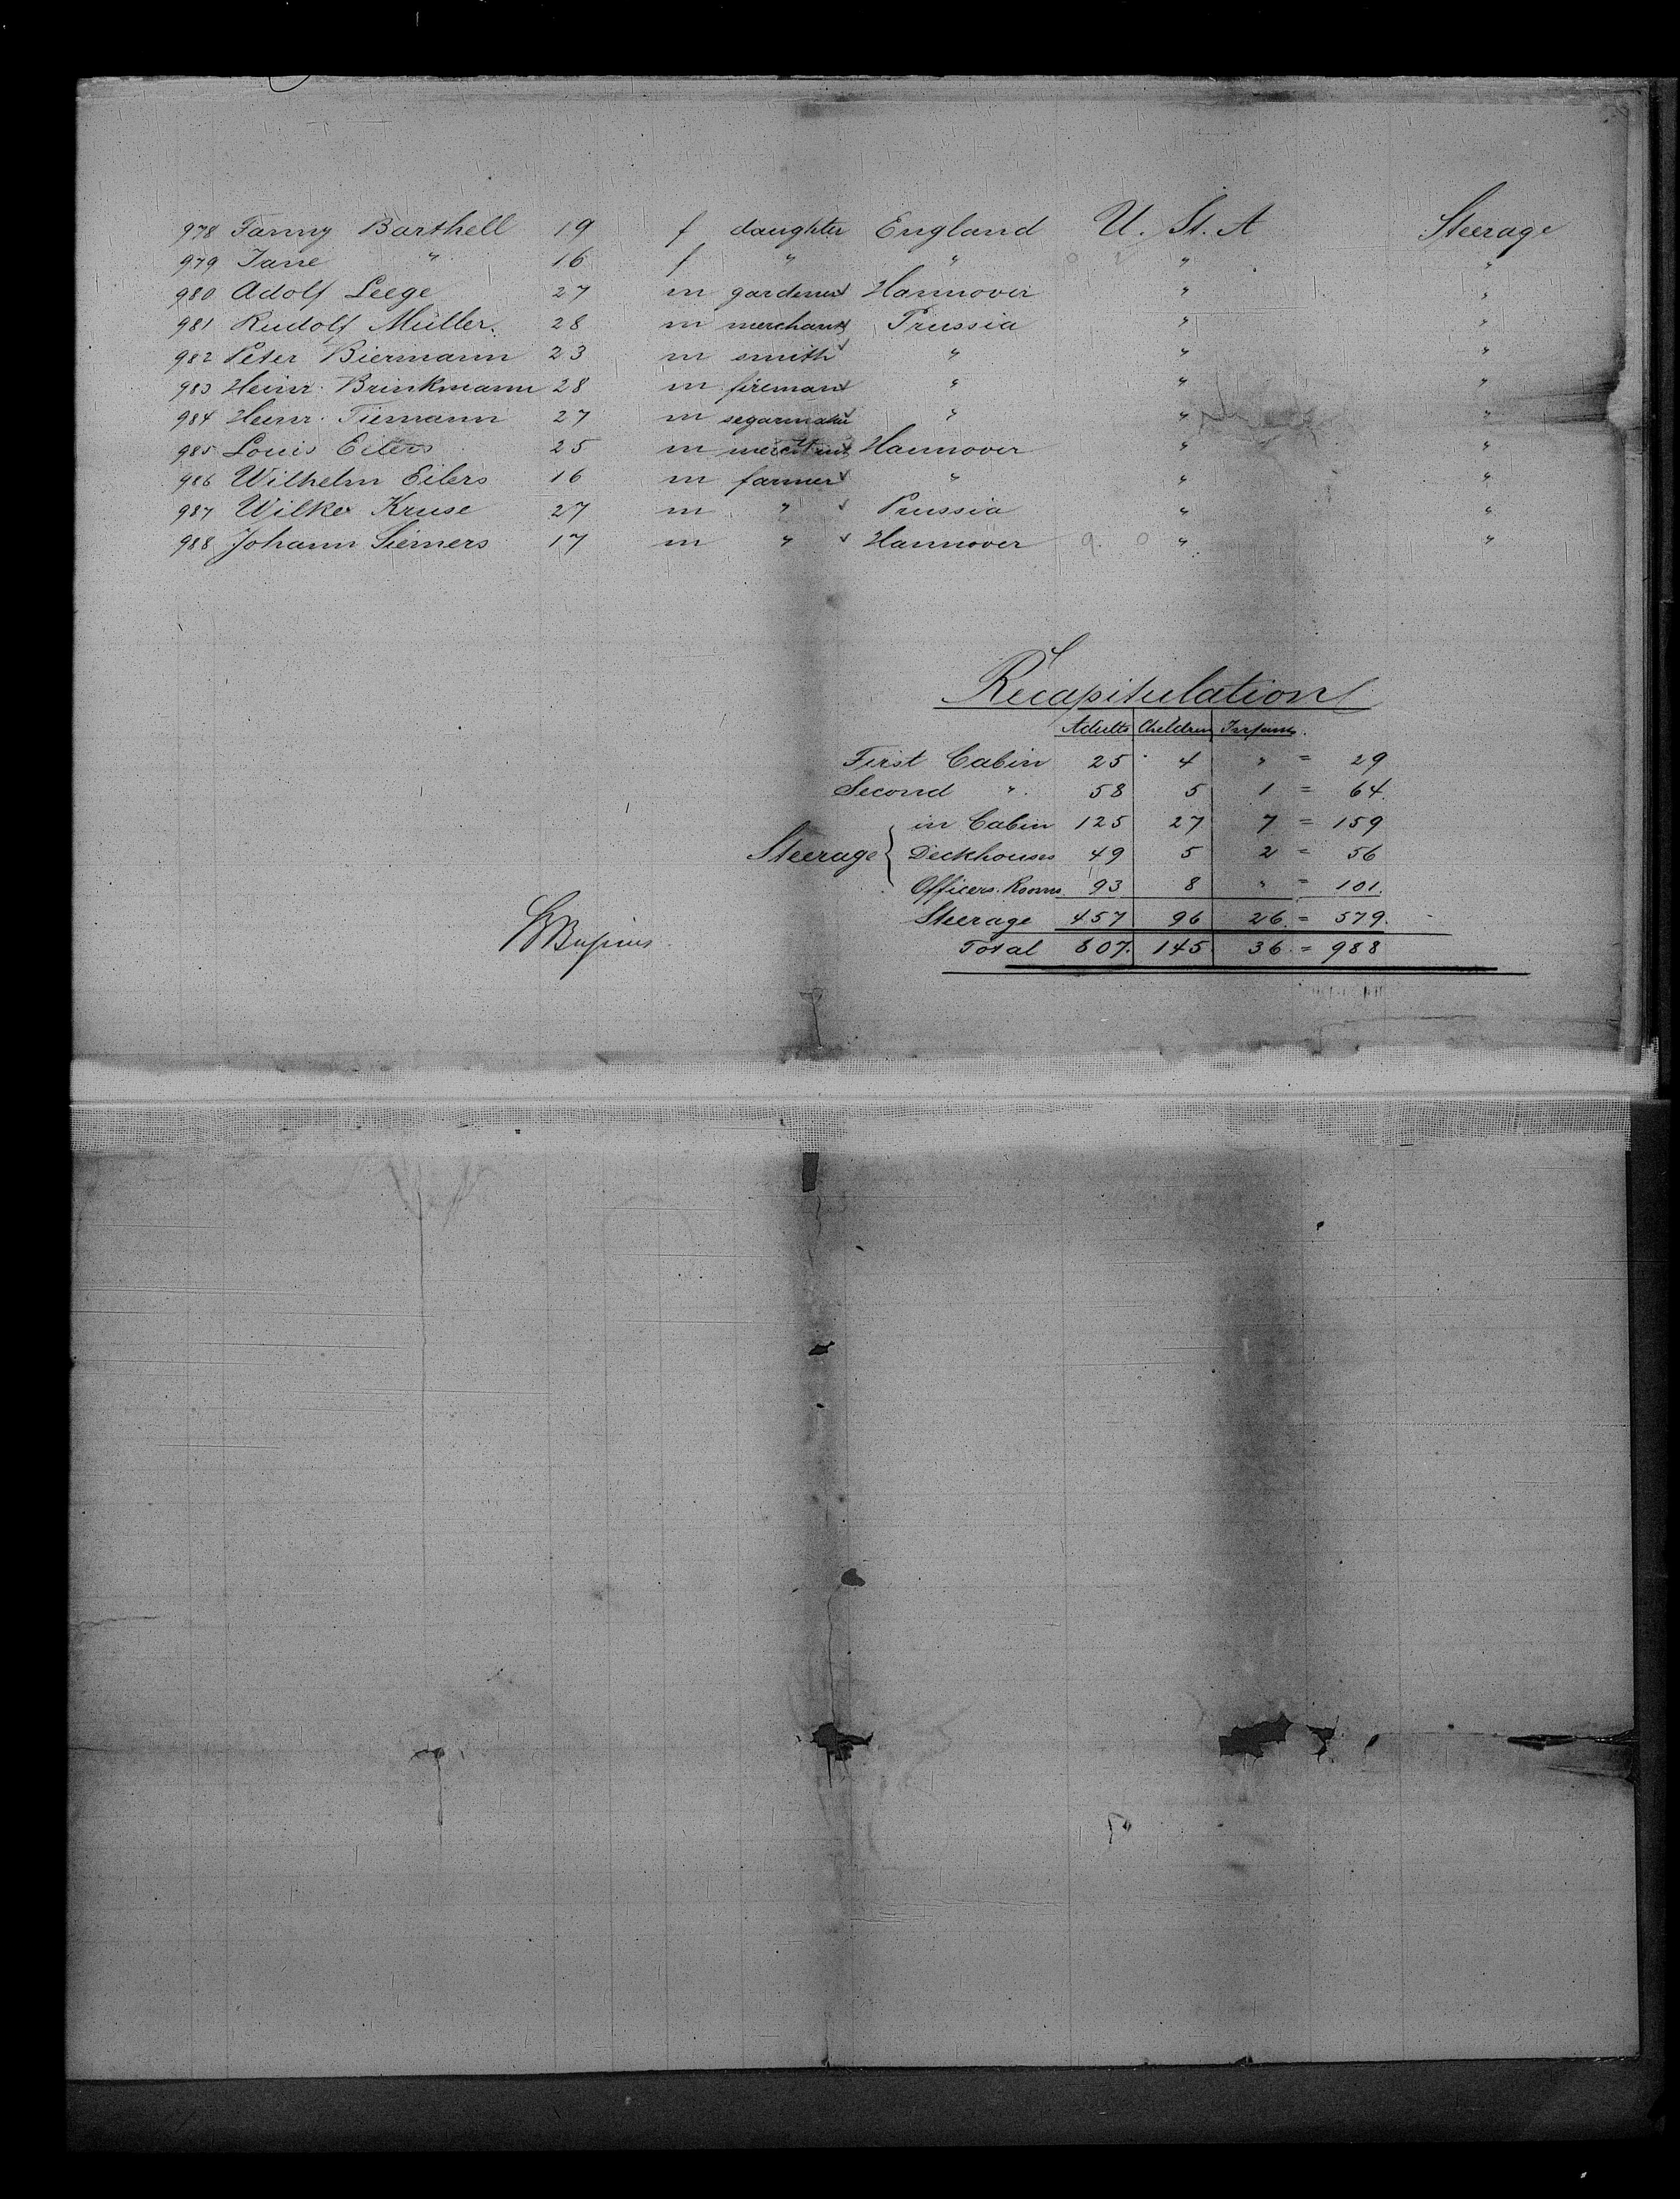 978 Fanny Barthell 19 f daughter England U. St. A Steerage
979 Jane " 16 f " " " "
980 Adolf Leege 27 m gardener Hannover " "
981 Rudolf Müller. 28 m merchant Prussia " "
982 Peter Biermann 23 m smith " " "
983 Heinr. Brinkmann 28 m fireman " " "
984 Heinr. Tiemann 27 m segarmaker " " "
985 Louis Eilers 25 m merchant Hannover " "
986 Wilhelm Eilers 16 m farmer " " "
987 Wilke Kruse 27 m " Prussia " "
988 Johann Siemers 17 m " Hannover " "
Recapitulation
Adults Children Infants.
First Cabin 25 4 " = 29
Second " 58 5 1 = 64.
in Cabin 125 27 7 = 159
Steerage { Deckhouses 49 5 2 = 56
Officers. Rooms. 93 8 " = 101.
Steerage 457 96 26. = 579.
Total 807. 145. 36. = 988